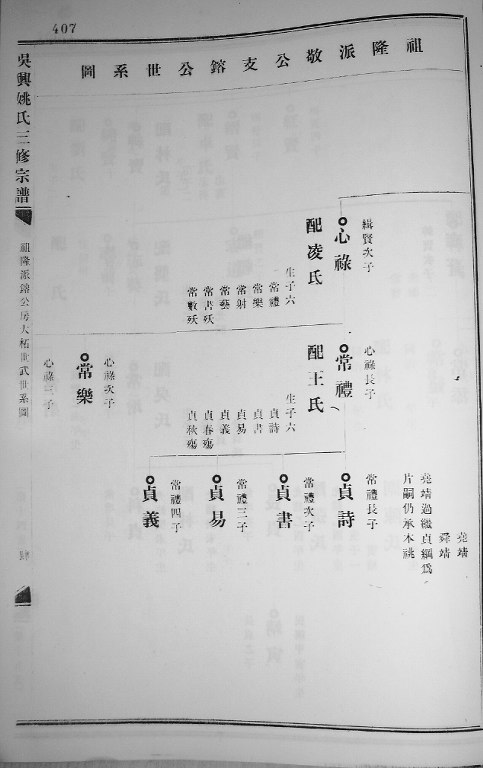 407
祖隆派敬公支鎔公世系圖
吳興姚氏三修宗譜
祖隆派鎔公房大柘世武世系圖
緝賢次子
心祿
配凌氏
生子六
常禮
常樂
常射
常藝
常書殀
常數殀
心祿長子
常禮
配王氏
生子六
貞詩
貞書
貞易
貞義
貞春殤
貞秋殤
心祿次子
常樂
心祿三子
堯靖
舜靖
堯靖過繼貞綱爲
片嗣仍承本祧
常禮長子
貞詩
常禮次子
貞書
常禮三子
貞易
常禮四子
貞義